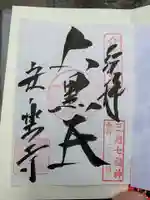 奉拝
三河七福神
大黒天
安楽寺